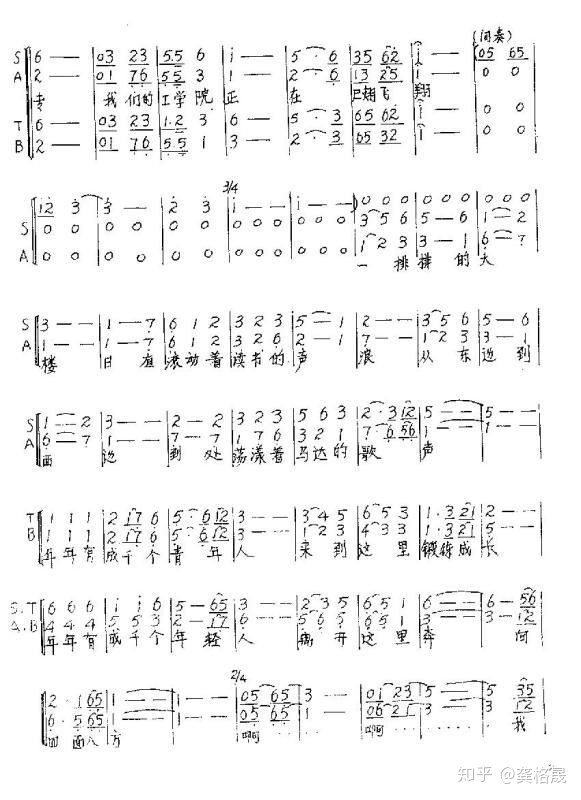 (间奏)
S 6 — — | 03 23 | 5.5 6 | i — — | 5 · 6 | 35 62 | i — — | 05 65
A 2 — — | 01 76 | 55 3 | 1 — — | 2 · 6 | 13 25 | 1 — — | 0 0
我们的工学院正在 飞翔
T 6 — — | 03 23 | 1·2 3 | 6 — — | 5 · 3 | 65 62 | i — — | 0 0
B 2 — — | 01 76 | 5.5 1 | 6 — — | 2 · 3 | 65 32 | 1 — — | 0 0
3/4
12 3 | 3 — — | 2 3 | i — — | i — — | 0 0 0 | 0 0 0 | 0 0 0
S 0 0 | 0 0 | 0 0 | 0 0 0 | 0 0 0 | 3 5 6 | 5 — 6 | 1 — 2
A 0 0 | 0 0 | 0 0 | 0 0 0 | 0 0 0 | 1 2 3 | 3 — 1 | 6 — 7
一排排的大
S 3 — — | 1 — 7 | 6 1 2 | 3 2 3 | 5 — 1 | 2 — — | 3 5 6 | 5 — 6
A 1 — — | 1 — 7 | 6 1 2 | 3 2 6 | 5 — 1 | 7 — — | 1 2 3 | 3 — 1
楼日夜滚动着读书的声浪从东边到
S 1 — 2 | 3 — — | 2 — 2 | 3 2 3 | 5 6 3 | 2 · 3 12 | 5 — — | 5 — —
A 6 — 7 | 1 — — | 7 — 7 | 1 7 6 | 3 2 1 | 7 · 6 56 | 1 — — | 1 — —
西边到处荡漾着马达的歌声
T 1 1 1 | 2 17 6 | 5 · 6 12 | 3 — — | 3 4 5 | 6 5 3 | 1 · 3 21 | 2 — —
B 1 1 1 | 2 17 6 | 5 · 6 12 | 3 — — | 1 2 3 | 4 3 3 | 1 · 3 21 | 5 — —
年年有成千个青年人来到这里锻炼成长
S.T 6 6 6 | i i 6 | 5 — 65 | 3 — — | 2 3 5 | 6 5 1 | 6 — — | 6 — 56
A.B 4 4 4 | 5 5 3 | 2 — 17 | 6 — — | 5 6 5 | 6 5 1 | 3 — — | 3 — 12
年年有成千个年轻人离开这里奔向
2/4
2 · 1 65 | 1 — — | 1 — — | 05 65 | 3 — | 01 23 | 5 — | 5 35
6 · 5 65 | 1 — — | 1 — — | 05 65 | 1 — | 06 21 | 3 — | 3 12
四面八方 啊 啊 我
知乎 @龚格晟